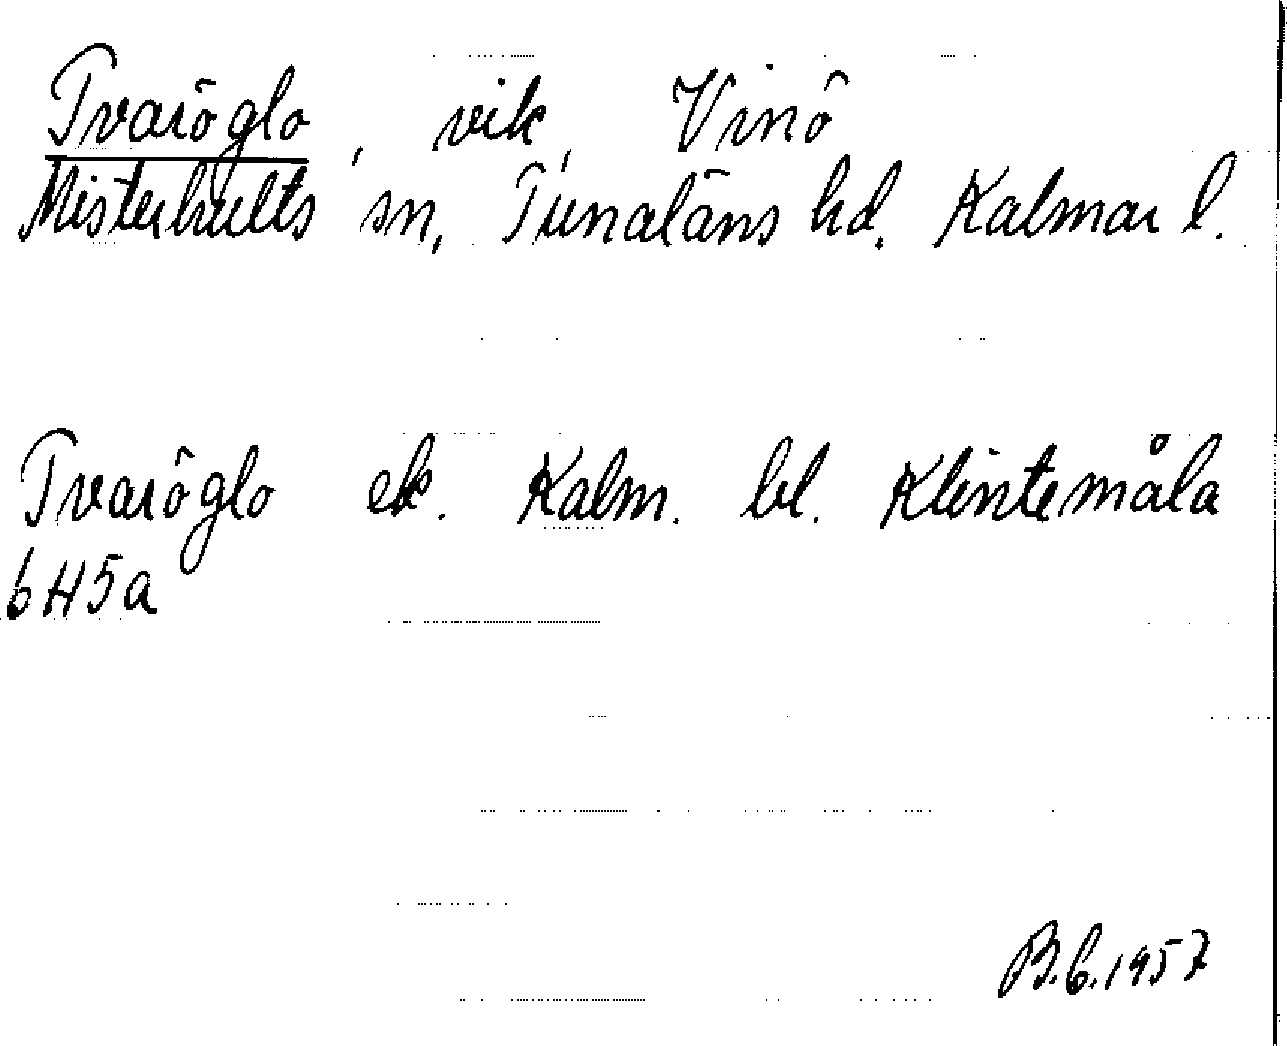 Tvaröglo, vik, Vinö
Misterhults sn, Tunaläns hd. Kalmar l.
Tvaröglo ek. Kalm. bl. Klintemåla
6H5a
B.C.1957